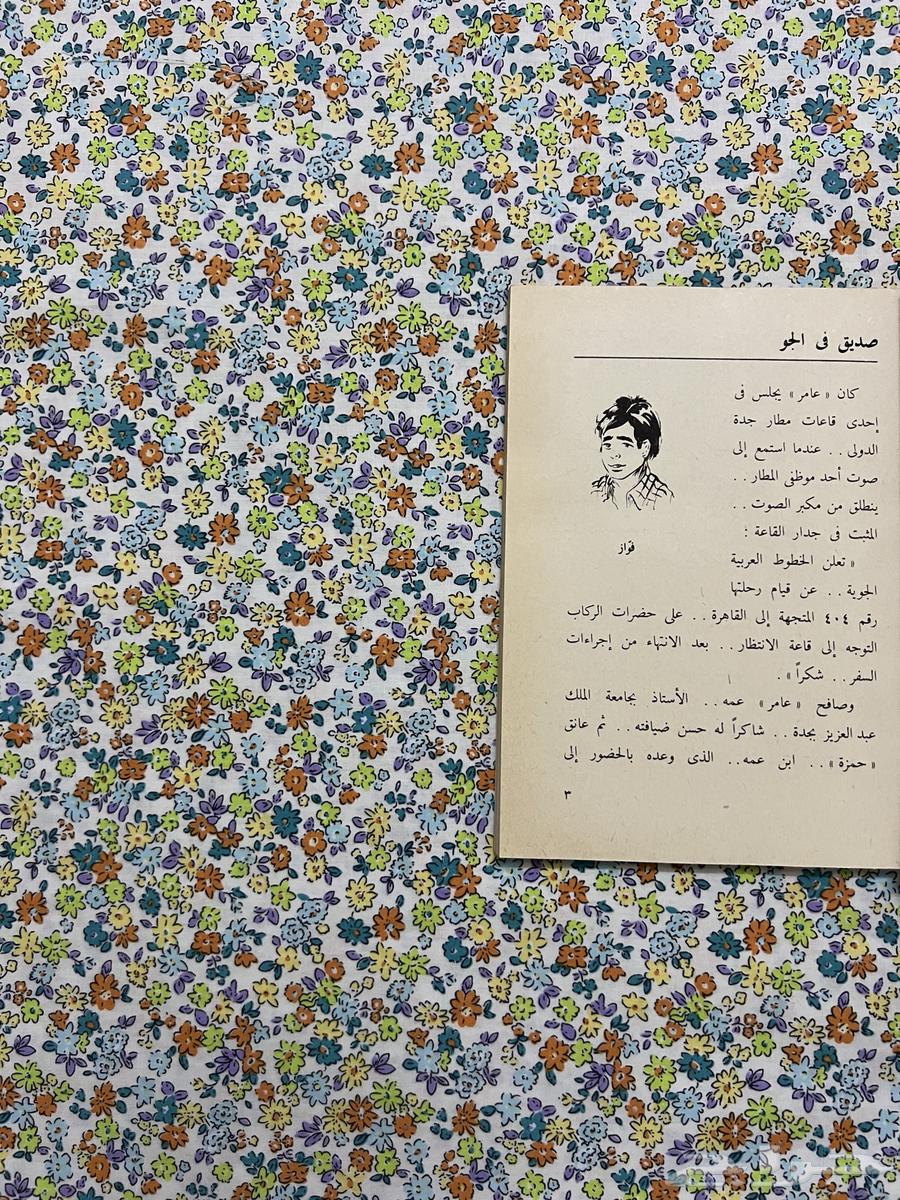 صديق فى الجو
كان « عامر » يجلس فى
إحدى قاعات مطار جدة
الدولى . . عندما استمع إلى
صوت أحد موظفى المطار . .
ينطلق من مكبر الصوت . .
المثبت فى جدار القاعة :
فوّاز
« تعلن الخطوط العربية
الجوية . . عن قيام رحلتها
رقم ٤٠٤ المتجهة إلى القاهرة . . على حضرات الركاب
التوجه إلى قاعة الانتظار . . بعد الانتهاء من إجراءات
السفر . . شكراً » .
وصافح « عامر » عمه . . الأستاذ بجامعة الملك
عبد العزيز بجدة . . شاكراً له حسن ضيافته . . ثم عانق
« حمزة » . . ابن عمه . . الذى وعده بالحضور إلى
٣